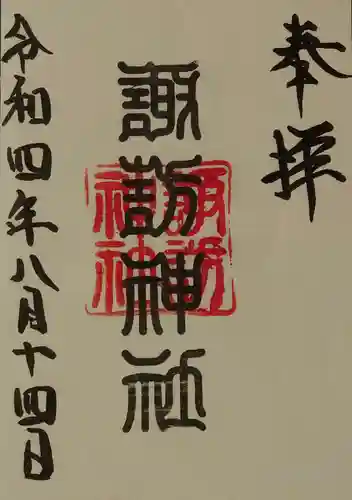 奉拝
諏訪神社
諏訪神社
令和四年八月十四日